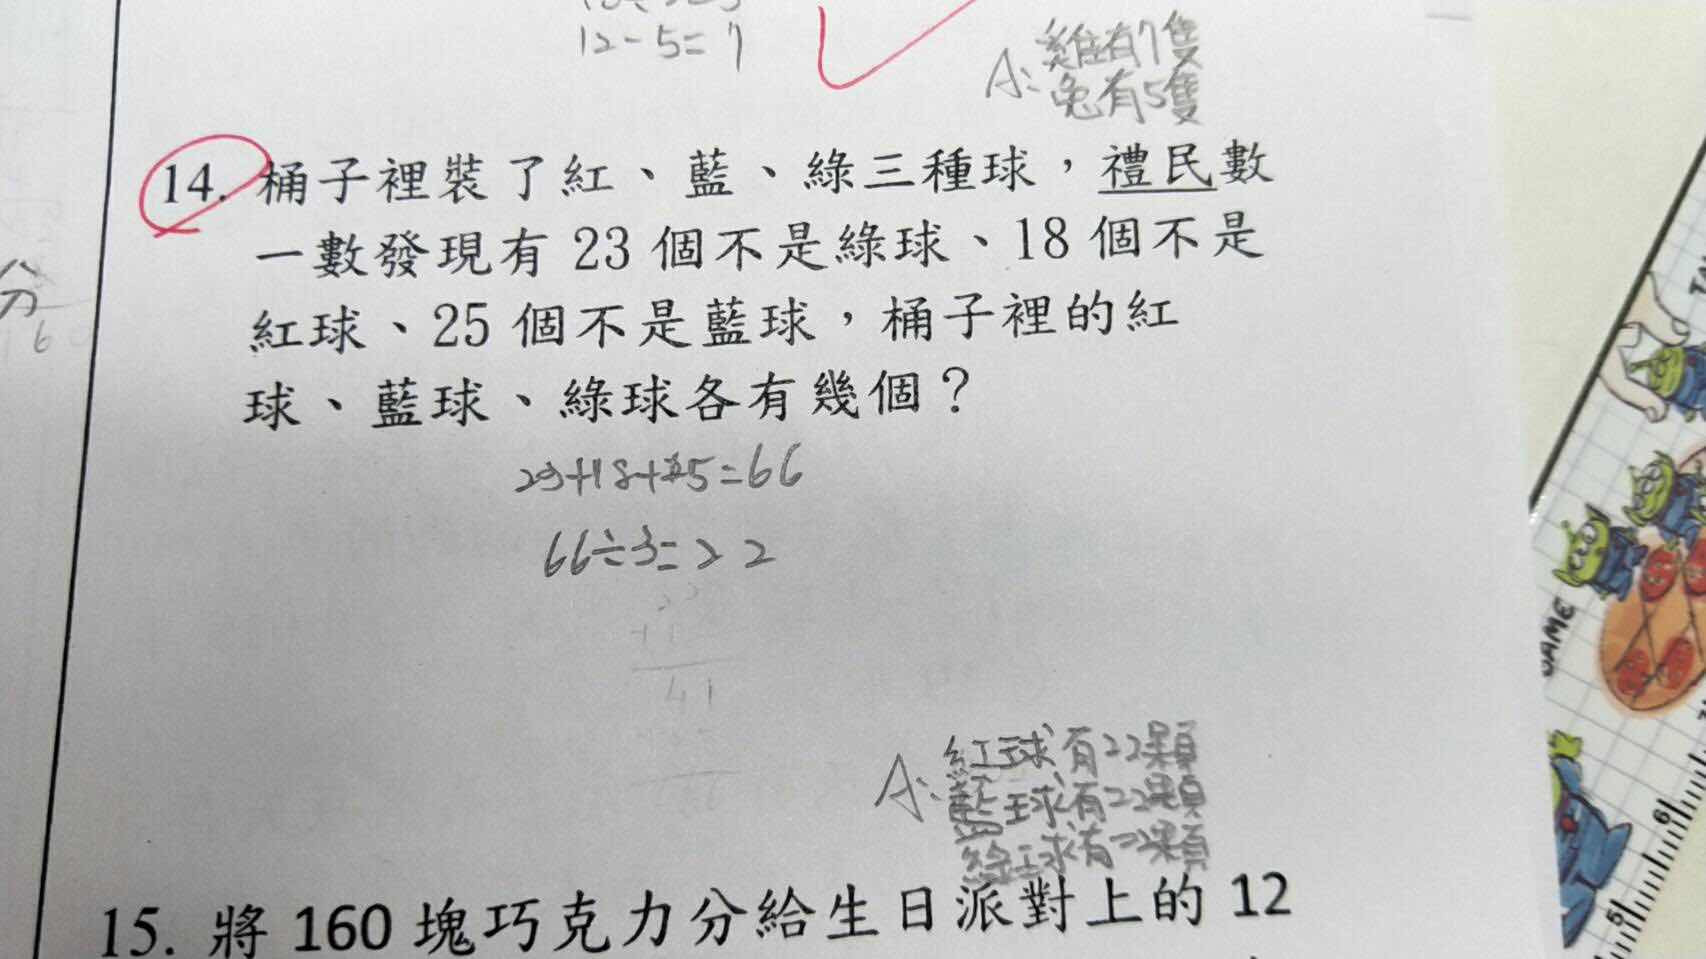 12-5=7
A:雞有7隻
兔有5隻
14. 桶子裡裝了紅、藍、綠三種球，禮民數
一數發現有 23 個不是綠球、18 個不是
紅球、25 個不是藍球，桶子裡的紅
球、藍球、綠球各有幾個？
分
6
23+18+25=66
66÷3=22
41
A:紅球有22顆
藍球有22顆
綠球有22顆
15. 將 160 塊巧克力分給生日派對上的 12
GAME
6
5